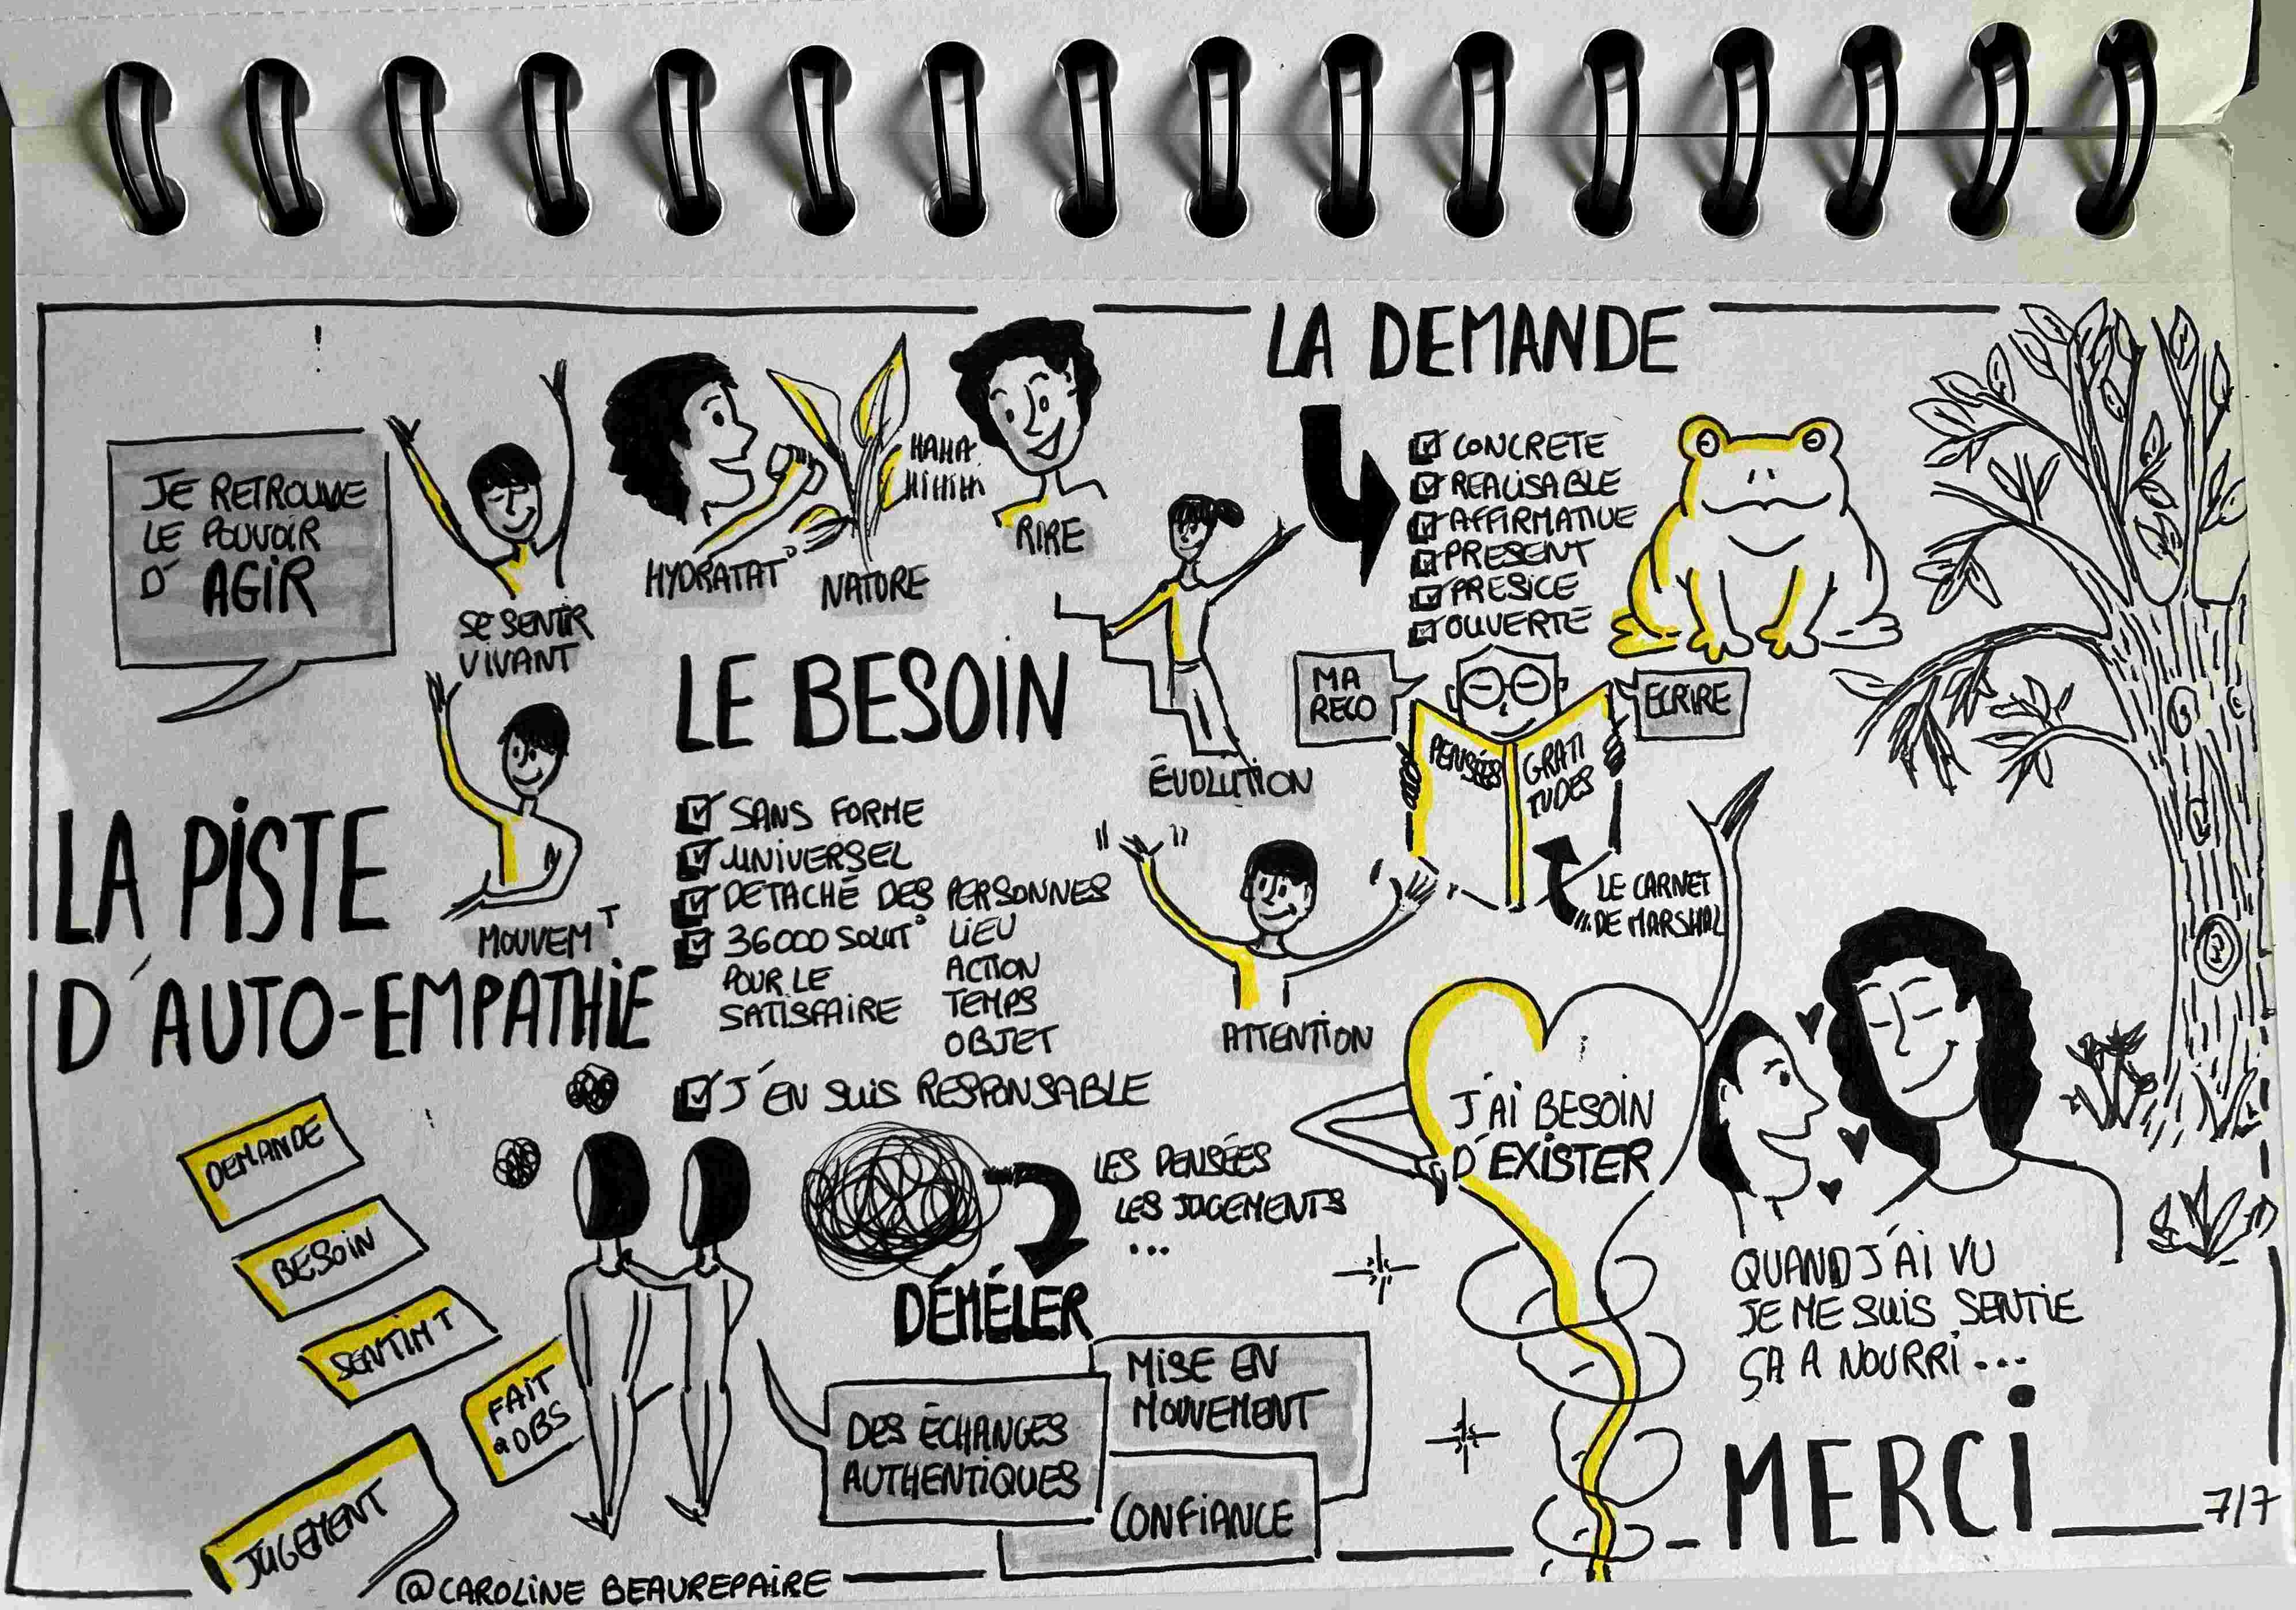 LA DEMANDE
CONCRETE
REALISABLE
AFFIRMATIVE
PRESENT
PRESICE
OUVERTE
JE RETROUVE
LE POUVOIR
D' AGIR
SE SENTIR
VIVANT
HYDRATAT°
NATURE
HAHA
HIHIHI
RIRE
MOUVEMT
LE BESOIN
SANS FORME
UNIVERSEL
DETACHÉ DES PERSONNES
LIEU
ACTION
TEMPS
OBJET
36000 SOLUT°
POUR LE
SATISFAIRE
J'EN SUIS RESPONSABLE
ÉVOLUTION
ATTENTION
MA
RECO
ECRIRE
PENSÉES
GRATI
TUDES
LE CARNET
DE MARSHAL
LA PISTE
D'AUTO-EMPATHIE
DEMANDE
BESOIN
SENTIMT
FAIT
OBS
JUGEMENT
LES PENSÉES
LES JUGEMENTS
...
DÉMÉLER
DES ÉCHANGES
AUTHENTIQUES
MISE EN
MOUVEMENT
CONFIANCE
J'AI BESOIN
D'EXISTER
QUAND J'AI VU
JE ME SUIS SENTIE
ÇA A NOURRI...
MERCI
7/7
@CAROLINE BEAUREPAIRE